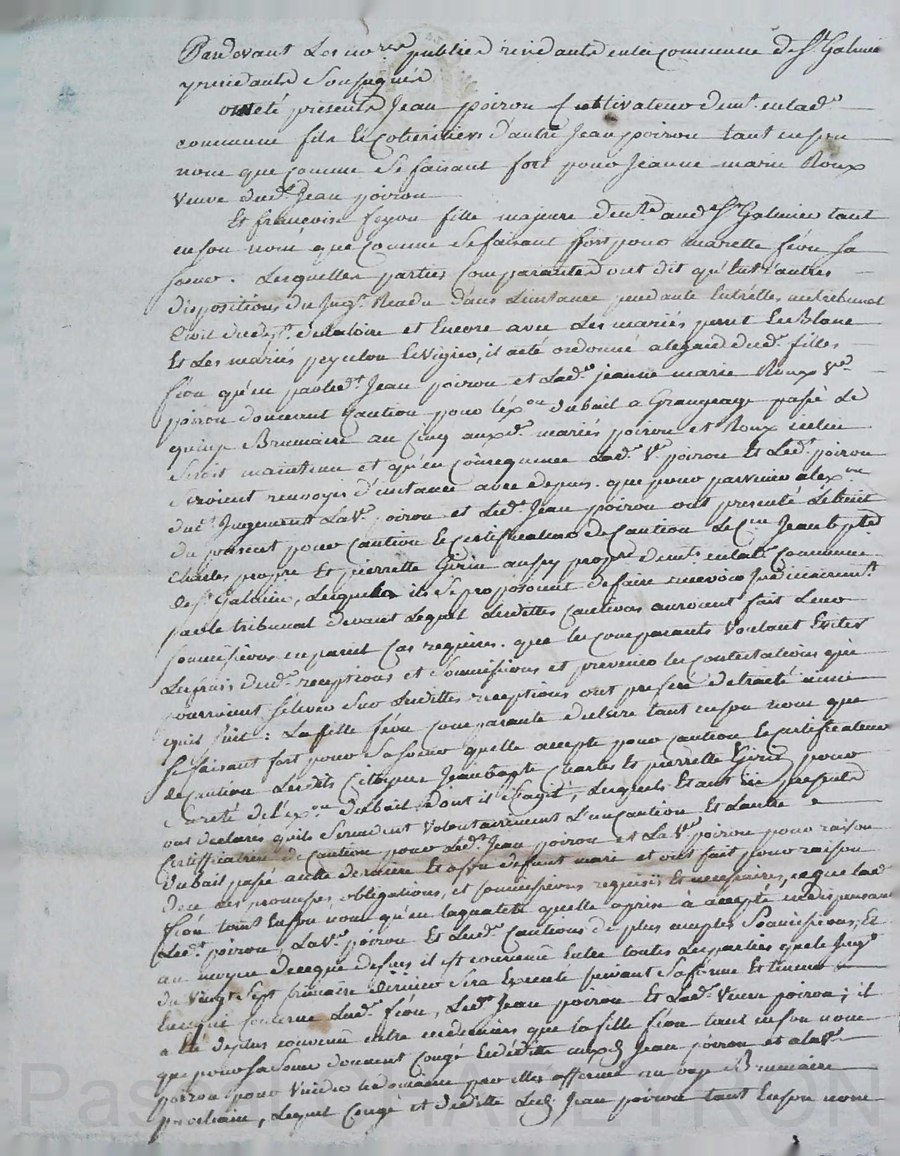 Pardevant Les no.res publics residants en la commune de St. Galmier
y residants Soussignés
ont été présents Jean poiron Cultivateur demt. en lad.e
commune fils Et Coheritiers d'autre Jean poiron tant en son
nom que comme se faisant fort pour Jeanne marie Roux
veuve dud.t Jean poiron
Et françoise féyon fille majeure dem.te aud. St. Galmier tant
en son nom que comme se faisant fort pour mariette féon sa
soeur. Lesquelles parties Comparantes ont dit qu'Entr'autres
dispositions du Jug.t Rendu dans L'instance pendante Entr'elles au tribunal
Civil du dep.t de la loire et Encore avec Les mariés perret Et Blanc
Et Les mariés peyculon Et Vigier, il a été ordonné a légard desd. filles
féon qu'en par led.t Jean poiron et Lad.e jeanne marie Roux V.ve
poiron donneront Caution pour L'éx.on du bail a Grangeage passé Le
quinze Brumaire an Cinq auxd. mariés poiron et Roux icelui
seroit maintenu et qu'en Conséquence Lad.e V.e poiron Et Led.t poiron
seroient renvoyés d'instance avec depens. que pour parvenir a l'ex.on
dud.t Jugement La v.e poiron et Led. Jean poiron ont presenté
du present pour Caution Et Certificateur de Caution Le C.en Jean bapte.
Charles propre Et pierrette Girin aussy propre demt. en lad.e Commune
de St. Galmier, Lesquels ils se proposoient de faire recevoir Judiciairem.t
par le tribunal devant Lequel Lesdittes Cautions auroient fait Leurs
soumissions en pareil Cas requises. que les comparants Voulant Eviter
Les frais desd. receptions et soumissions et prevenir les contestations qui
pourroient s'élever Sur Lesdittes receptions ont préféré de traiter ainsi
qu'il suit: La fille féon comparante declare tant en son nom que
se faisant fort pour sa soeur quelle accepte pour caution Et Certificateur
de Caution Lesdits Citoyens Jean bapte Charles Et pierrette Girin pour
Sureté de l'ex.on du bail dont il s'agit, Lesquels Etant ici presents
ont declarés qu'ils se rendent Volontairement L'un Caution Et L'autre
Certificateur de Caution pour Led. Jean poiron et La V.e poiron pour raison
du bail passé a cette derniere Et a son defunt marie et ont fait pour raison
de ce Les promesses, obligations, et soumissions requises Et necessaires, ce que Lad.
féon tant En son nom qu'en la qualité quelle a prise a accepté en dispensant
Led.t poiron, La v.e poiron Et Lesd. Cautions de plus amples soumissions, Et
au moyen de ce que dessus il est convenu Entre toutes les parties que le Jug.t
du Vingt Sept frimaire dernier sera Executé suivant Sa forme Et teneur
En ce qui concerne Lesd. féon, Led. Jean poiron Et Lad.e Veuve poiron; il
a été de plus convenu entre icelles que la fille féon tant en son nom
que pour sa soeur donnent Congé Et dédite auxd. Jean poiron et a la V.e
poiron pour Vuider le domaine par elles affermé au onze Brumaire
prochain, Lequel Congé et dédite Led. Jean poiron tant En son nom
Pascal CHALEYRON